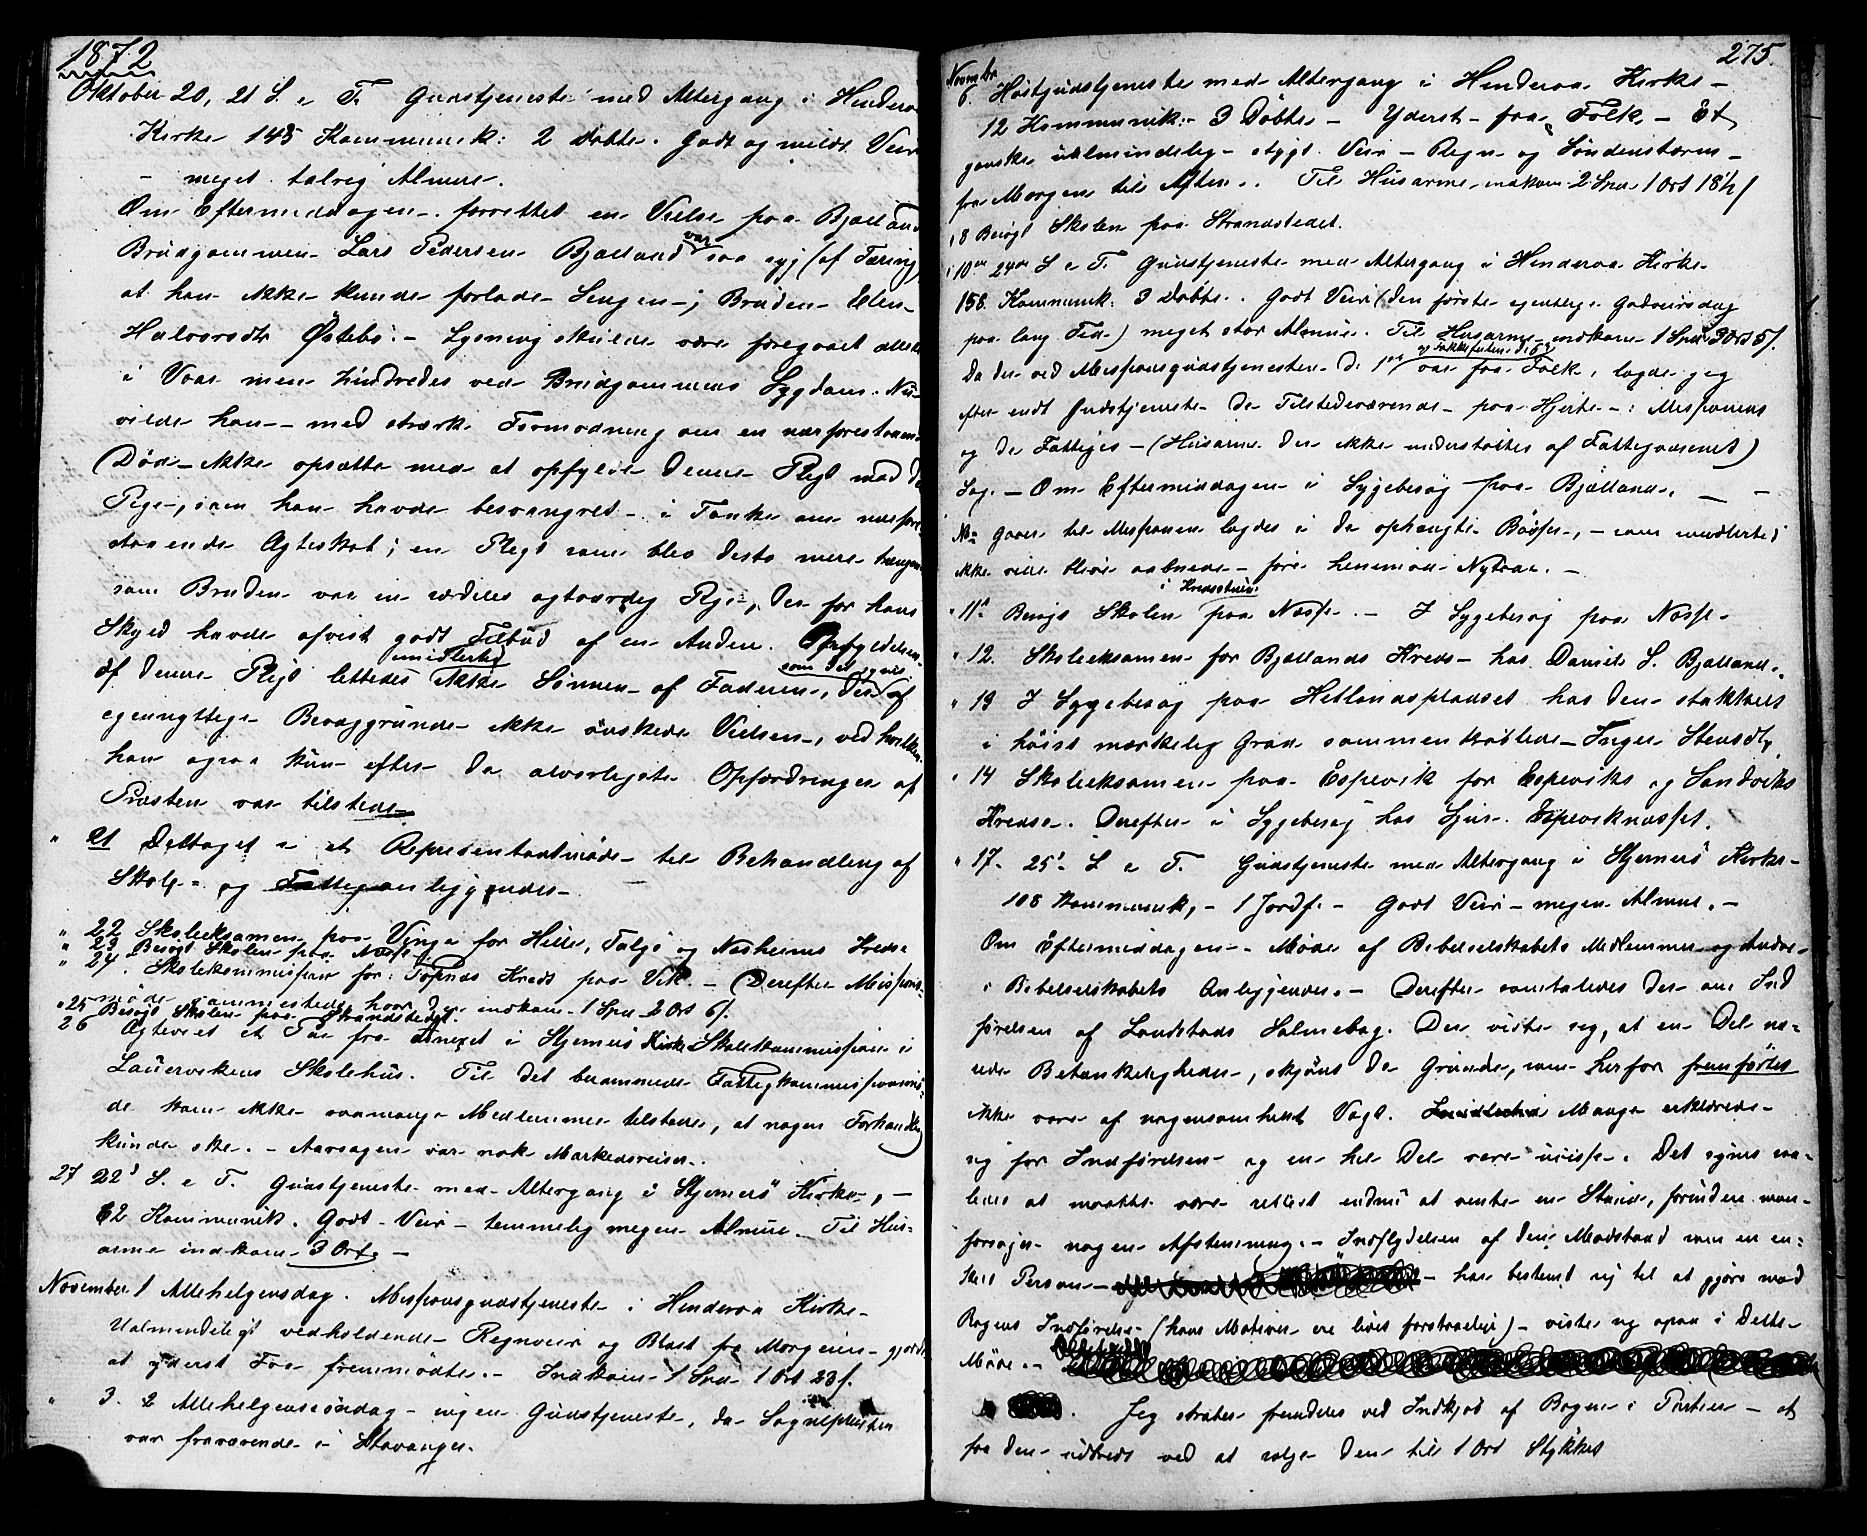 1872
Oktober 20, 21 S. e. T. Gudstjeneste med Altergang i Hinderaa
Kirke 145 Kommunik: 2 Döbte. Godt og mildt Veir
- meget talrig Almue.
Om Eftermiddagen forrettet en Vielse paa Bjælland
Brudgommen Lars Pedersen Bjælland var saa syg (af Tæring)
at han ikke kunde forlade Sengen; Bruden Elen
Halvorsdtr Östebö. Lysning skulde være foregaaet allerede
i Vaar men hindredes ved Brudgommens Sygdom. Nu
vilde han - med stærk Formodning om en nærforestaaende
Död ikke opsætte med at opfylde denne Pligt mod den
Pige, som han havde besvangret i Tanke om nærfore-
staaende Ægteskab; en Pligt som blev desto mere
som Bruden var en særdeles agtværdig Pige, der for hans
Skyld havde afvist godt Tilbud af en Anden. Opfyldelsen
af denne Pligt lettedes imidlertid ikke Sönnen af Faderen, der som det syntes af
egennyttige Bevæggrunde ikke önskede Vielsen, ved hvilken
han ogsaa kun efter de alvorligste Opfordringer af
Præsten var tilstede.
" 21 Deltaget i et Representantmöde til Behandling af
Skole- og Fattiganliggender
" 22 Skoleeksamen paa Vinge for Hille, Talgö og Nædheims Kreds
" 23 Besögt Skolen paa
" 24 Skolekommission for Topnæs Kreds paa Vik. - (Derefter Missions-
möde sammesteds hvor der indkom 1 Spd 2 Ort 6 s.
" 25 Besögt Skolen paa Strandstedet.
26 Ægteviet et Par fra Annexet i Stjernerö Kirke Skolekommission i
Lauervikens Skolehus. Til det berammede Fattigkommissionsmö-
de kom ikke saamange Medlemmer tilstede, at nogen Forhandling
kunde ske. - Aarsagen var nok Markedsreiser.
27 22d S. e. T. Gudstjeneste med Altergang i Stjernerö Kirke, -
62 Kommunik. Godt Veir - temmelig megen Almue. Til Hus-
arme indkom 3 Ort. -
November 1 Allehelgensdag. Missionsgudstjeneste i Hinderaa Kirke
Ualmindeligt vedholdende Regnveir og Blæst fra Morgenen gjorde
at yderst Faa fremmödte. - Indkom 1 Spd 1 Ort 23 s.
" 3. 2 Allehelgenssöndag - ingen Gudstjeneste, da Sognepresten
var fraværende i Stavanger.
275.
Novembr
6. Höstgudstjeneste med Altergang i Hinderaa Kirke -
12 Kommunik: 3 Döbte - Yderst faa Folk - Et
ganske ualmindelig stygt Veir - Regn og Söndenstorm
fra Morgen til Aften. Til Husarme indkom 2 Spd 1 Ort 18 s
" 8 Besögt Skolen paa Strandstedet.
" 10de 24de S. e. T. Gudstjeneste med Altergang i Hinderaa Kirke
158 Kommunik. 3 Döbte. Godt Veir (den förste egentlige Godveirsdag
paa lang Tid) meget stor Almue. Til Husarme indkom 1 Spd 3 Ort 5 s.
Da der ved Missionsgudstjenesten d. 1ste og Takkefesten d. 6 var faa Folk, lagde jeg
efter endt Gudstjeneste de Tilstedeværende paa Hjerte: Missionens
og de Fattiges - (Husarme der ikke understöttes af Fattigvæsenet)
Sag. - Om Eftermiddagen i Sygebesög paa Bjælland. -
NB Gaver til Missionen lagdes i de ophængte Bösser, - som imidlertid
ikke ville blive aabnede för henimod Nytaar. -
" 11te Besögt Skolen i Kredsstuen paa Næsse. - I Sygebesög paa Næsse
" 12. Skoleeksamen for Bjællands Kreds hos Daniel S. Bjælland.
" 13 I Sygebesög paa Hetlandspladset hos den stakkels
i höist mærkelig Grad sammenkröblede Inger Stensdtr
" 14 Skoleeksamen paa Espevik for Espeviks og Sandviks
Kredse. Derefter i Sygebesög hos Espeviknæsset.
" 17. 25d S. e. T. Gudstjeneste med Altergang i Stjernerö Kirke
108 Kommunik, - 1 Jordf. - Godt Veir - megen Almue. -
Om Eftermiddagen Möde af Bibelselskabets Medlemmer og Andre
i Bibelselskabets Anliggender. - Derefter samtaledes der om Ind
förelsen af Landstads Salmebog. Der viste sig, at en Del næ-
rede Betænkeligheder, skjönt de Grunde, som herfor fremförtes
ikke vare af nogensomhelst Vægt. Imidlertid Mange erklærede
sig for Indförelsen og en hel Del vare uvisse. Det synes saa-
ledes at maatte være rettest endnu at vente en Stund, forinden man
foretager nogen Afstemning. - Indflydelsen af den Modstand som en en-
kelt Person - har bestemt sig til at gjöre mod
Bogens Indförelse (hans Motiver ere lidet forstaaelige) - viste sig ogsaa i Dette
Möde. -
Jeg stræber fremdeles ved Indkjöb af Bogen i Partier - at
faa den udbredt ved at sælge den til 1 Ort Stykket